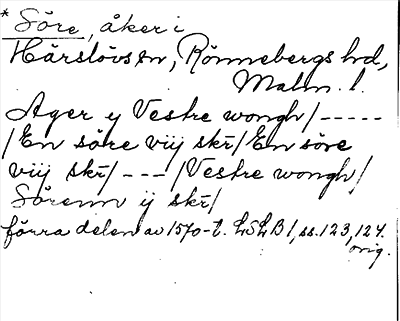 * Söre, åker i
Härslövs sn, Rönnebergs hd,
Malm. l.
Ager y Vestre wongh/-----
/En söre viij skr/ En söre
viij skr/ --- /Vestre wongh/
Sörenn ij skr/
förra delen av 1570-t. LSLB 1, ss. 123, 124.
orig.